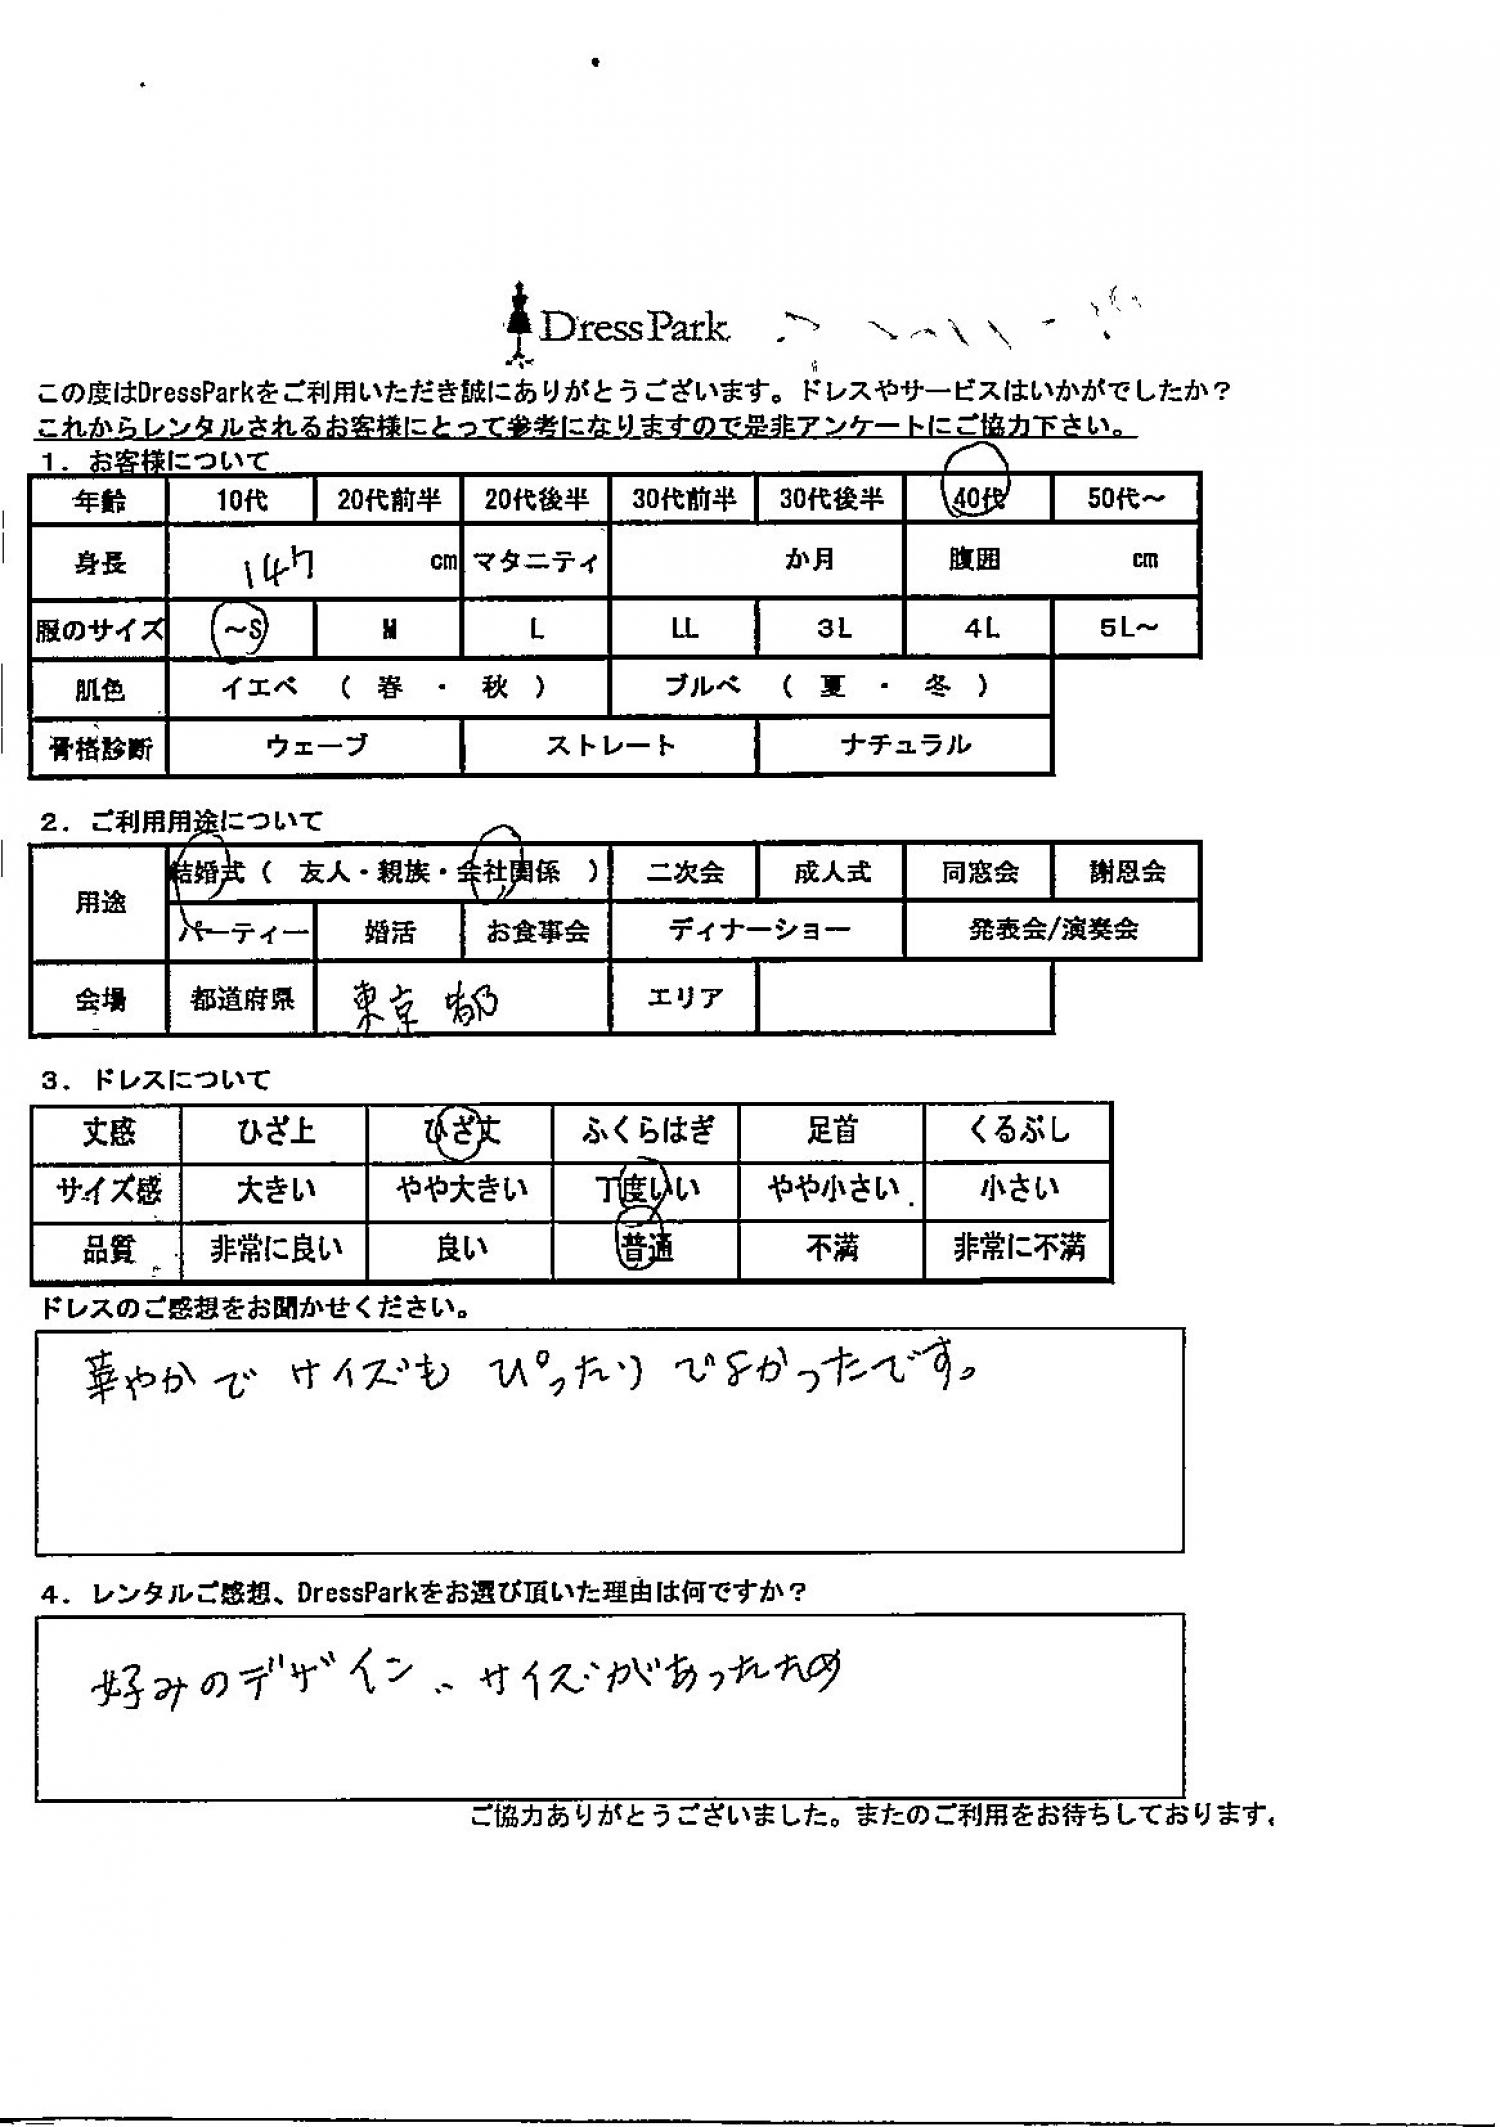 DressPark
この度はDressParkをご利用いただき誠にありがとうございます。ドレスやサービスはいかがでしたか？
これからレンタルされるお客様にとって参考になりますので是非アンケートにご協力下さい。
1．お客様について
年齢 10代 20代前半 20代後半 30代前半 30代後半 40代 50代～
身長 147 cm マタニティ か月 腹囲 cm
服のサイズ ～S M L LL 3L 4L 5L～
肌色 イエベ （ 春 ・ 秋 ） ブルベ （ 夏 ・ 冬 ）
骨格診断 ウェーブ ストレート ナチュラル
2．ご利用用途について
用途 結婚式（ 友人・親族・会社関係 ） 二次会 成人式 同窓会 謝恩会
パーティー 婚活 お食事会 ディナーショー 発表会/演奏会
会場 都道府県 東京都 エリア
3．ドレスについて
丈感 ひざ上 ひざ丈 ふくらはぎ 足首 くるぶし
サイズ感 大きい やや大きい 丁度いい やや小さい 小さい
品質 非常に良い 良い 普通 不満 非常に不満
ドレスのご感想をお聞かせください。
華やかで サイズも ぴったり でよかったです。
4．レンタルご感想、DressParkをお選び頂いた理由は何ですか？
好みのデザイン、サイズがあったため
ご協力ありがとうございました。またのご利用をお待ちしております。